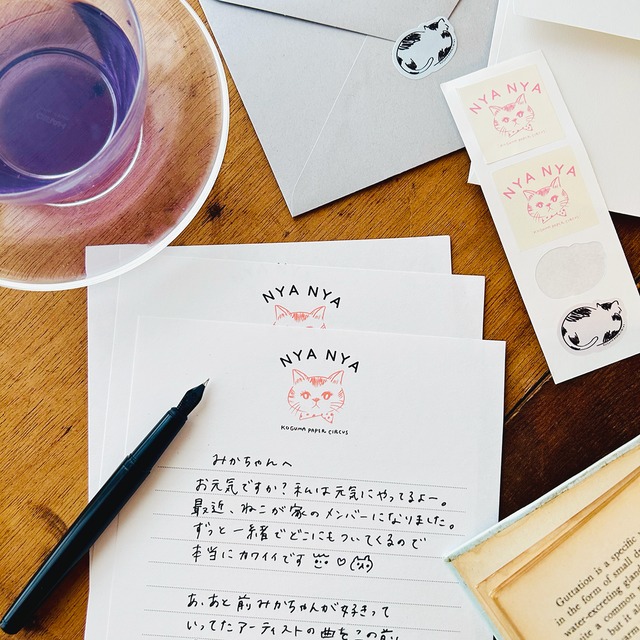 NYA NYA
NYA NYA
NYA NYA
NYA NYA
KOGUMA PAPER CIRCUS
みかちゃんへ
お元気ですか？私は元気にやってるよー。
最近、ねこが家のメンバーになりました。
ずっと一緒でどこにもついてくるので
本当にカワイイです
あ、あと前みかちゃんが好きって
いってたアーティストの曲をこの前
Guttation is a specific
in the form of small
water-excreting gland
quite a common
but it